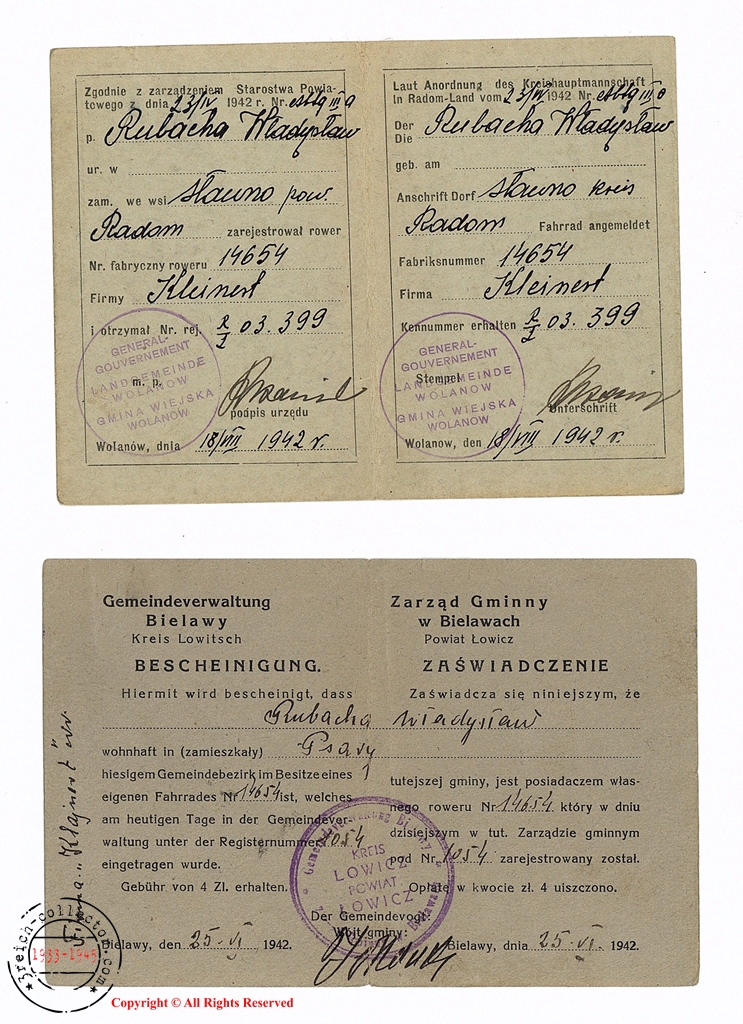 Zgodnie z zarządzeniem Starostwa Powia-
towego z dnia 23/IV 1942 r. Nr.
p. Rubacha Władysław
ur. w
zam. we wsi Sławno pow.
Radom zarejestrował rower
Nr. fabryczny roweru 14654
Firmy Kleinert
i otrzymał Nr. rej. R/I 03.399
GENERAL-
GOUVERNEMENT
LANDGEMEINDE
WOLANOW
GMINA WIEJSKA
WOLANOW
m. p.
podpis urzędu
Wolanów, dnia 18/VIII 1942 r.
Laut Anordnung des Kreishauptmannschaft
in Radom-Land vom 23/IV 1942 Nr.
Der
Die Rubacha Władysław
geb. am
Anschrift Dorf Sławno kreis
Radom Fahrrad angemeldet
Fabriksnummer 14654
Firma Kleinert
Kennummer erhalten R/I 03.399
GENERAL-
GOUVERNEMENT
LANDGEMEINDE
WOLANOW
GMINA WIEJSKA
WOLANOW
Stempel
Unterschrift
Wolanow, den 18/VIII 1942 r.
Gemeindeverwaltung
Bielawy
Kreis Lowitsch
BESCHEINIGUNG.
Hiermit wird bescheinigt, dass
Zarząd Gminny
w Bielawach
Powiat Łowicz
ZAŚWIADCZENIE
Zaświadcza się niniejszym, że
Rubacha Władysław
wohnhaft in (zamieszkały) Psary
hiesigem Gemeindebezirk im Besitze eines 1
eigenen Fahrrades Nr 14654 ist, welches
am heutigen Tage in der Gemeindever-
waltung unter der Registernummer 1054
eingetragen wurde.
Gebühr von 4 Zl. erhalten.
tutejszej gminy, jest posiadaczem włas-
nego roweru Nr 14654 który w dniu
dzisiejszym w tut. Zarządzie gminnym
pod Nr. 1054 zarejestrowany został.
Opłatę w kwocie zł. 4 uiszczono.
KREIS
LOWICZ
POWIAT
ŁOWICZ
Der Gemeindevogt:
Wójt gminy:
Bielawy, den 25-VI 1942.
Bielawy, dnia 25-VI. 1942.
3reich-collector.com
1933-1945
Copyright © All Rights Reserved